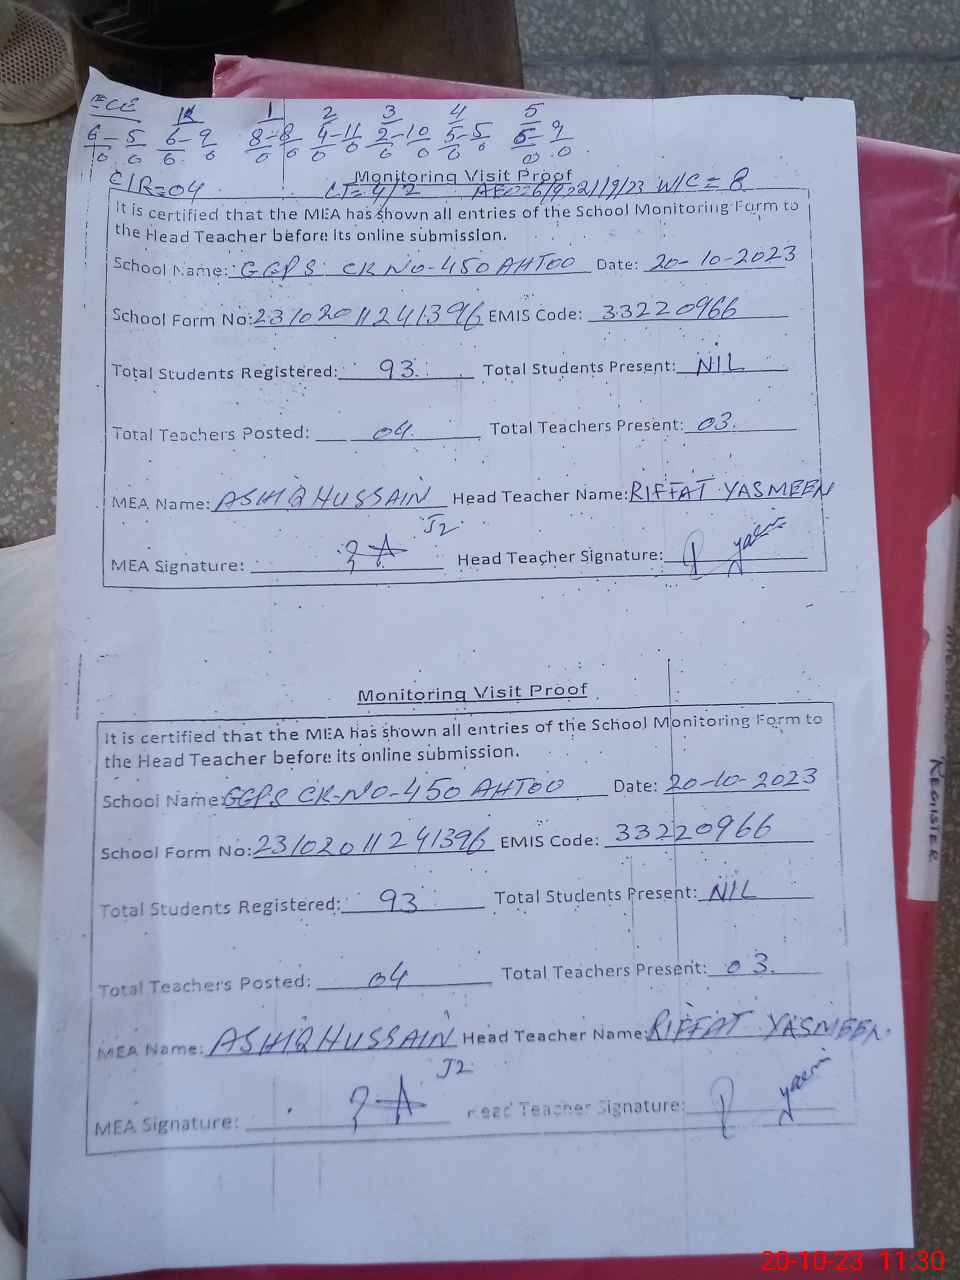 ECE K 1 2 3 4 5
6 – 5 6 – 9 8 – 8 4 – 11 2 – 10 5 – 5 5 – 9
0 0 6 0 0 0 0 0 0 0 0 0 0 0
Monitoring Visit Proof
C/R=04 CT=4/2 AEO=6/9,21/9/23 W/C=8
It is certified that the MEA has shown all entries of the School Monitoring Form to
the Head Teacher before its online submission.
School Name: GGPS CK NO-450 AHTOO Date: 20-10-2023
School Form No: 23102011241396 EMIS Code: 33220966
Total Students Registered: 93. Total Students Present: NIL
Total Teachers Posted: 04. Total Teachers Present: 03.
MEA Name: ASHIQ HUSSAIN Head Teacher Name: RIFFAT YASMEEN
J2
MEA Signature: Head Teacher Signature:
Monitoring Visit Proof
It is certified that the MEA has shown all entries of the School Monitoring Form to
the Head Teacher before its online submission.
School Name: GGPS CK-NO-450 AHTOO Date: 20-10-2023
School Form No: 23102011241396 EMIS Code: 33220966
Total Students Registered: 93 Total Students Present: NIL
Total Teachers Posted: 04 Total Teachers Present: 03.
MEA Name: ASHIQ HUSSAIN Head Teacher Name: RIFFAT YASMEEN.
J2
MEA Signature: Head Teacher Signature:
REGISTER
20-10-23 11:30